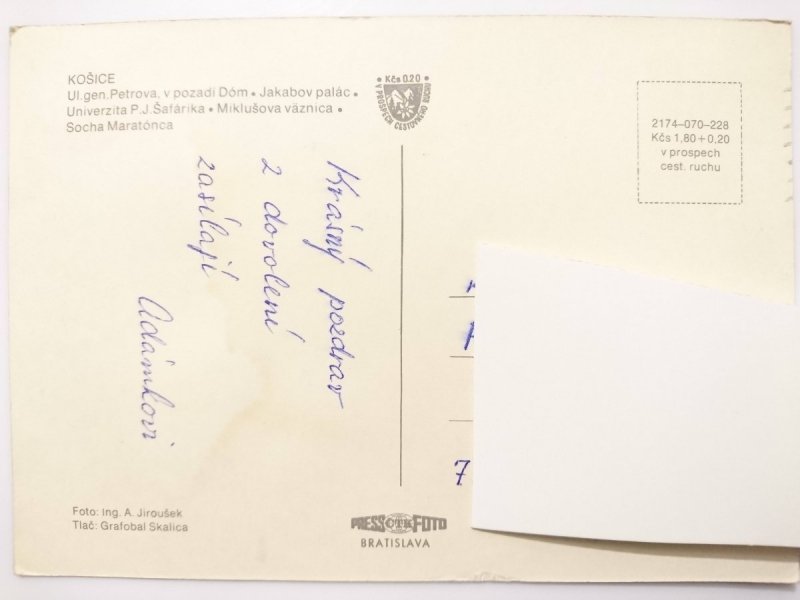 KOŠICE
Ul.gen.Petrova, v pozadí Dóm • Jakabov palác •
Univerzita P.J.Šafárika • Miklušova väznica •
Socha Maratónca
• Kčs 0.20 •
V PROSPECH CESTOVNÉHO RUCHU
2174–070–228
Kčs 1,80+0,20
v prospech
cest. ruchu
Krásný pozdrav
z dovolení
zasílají
Adámkovi
7
Foto: Ing. A. Jiroušek
Tlač: Grafobal Skalica
PRESS ČTK FOTO
BRATISLAVA